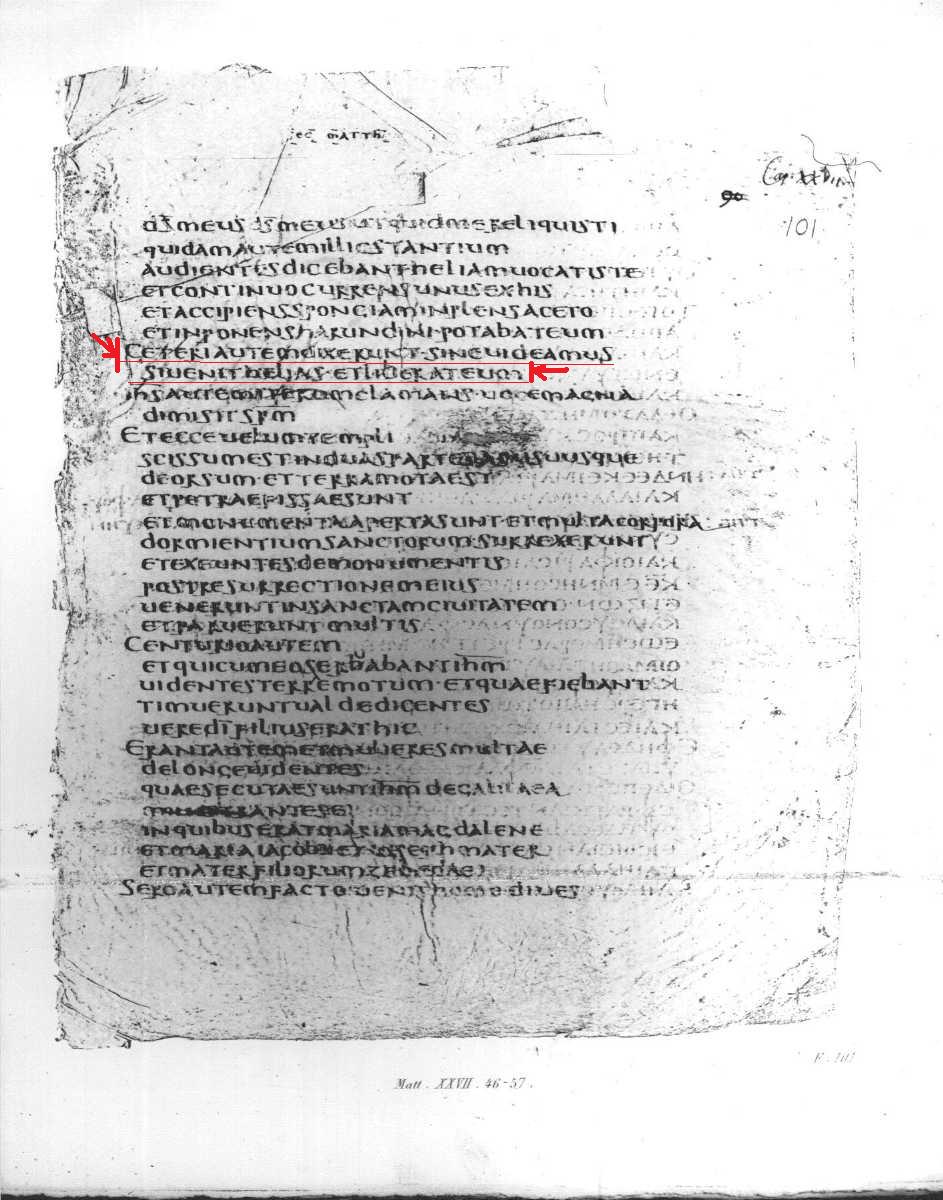 sec̄ matth
Cap. XXVII
90
101
d̄s meus d̄s meus utquid me reliquisti
quidam autem illic stantium
audientes dicebant heliam uocat iste
et continuo currens unus ex his
et accipiens spongiam inplens aceto
et inponens harundini · potabat eum
Ceteri autem dixerunt · sine uideamus
si uenit helias · et liberat eum
ih̄s autem iterum clamans uoce magna
dimisit sp̄m
Et ecce uelum templi
scissum est in duas partes a susu usque
deorsum · et terra mota est
et petrae fissae sunt
et monumenta aperta sunt · et multa corpora
dormientium sanctorum · surrexerunt
et exeuntes de monumentis
post resurrectionem eius
uenerunt in sanctam ciuitatem
et paruerunt multis
Centurio autem
et qui cum eo serbabant ih̄m
uidentes terremotum · et quae fiebant
timuerunt ualde dicentes
uere d̄i filius erat hic
Erant autem et mulieres multae
de longe uidentes
quae secutae sunt ih̄m de galilaea
in quibus erat maria magdalene
et maria iacobi et ioseph mater
et mater filiorum zebedaei
Sero autem facto uenit homo diues
F. 101
Matt. XXVII. 46-57.